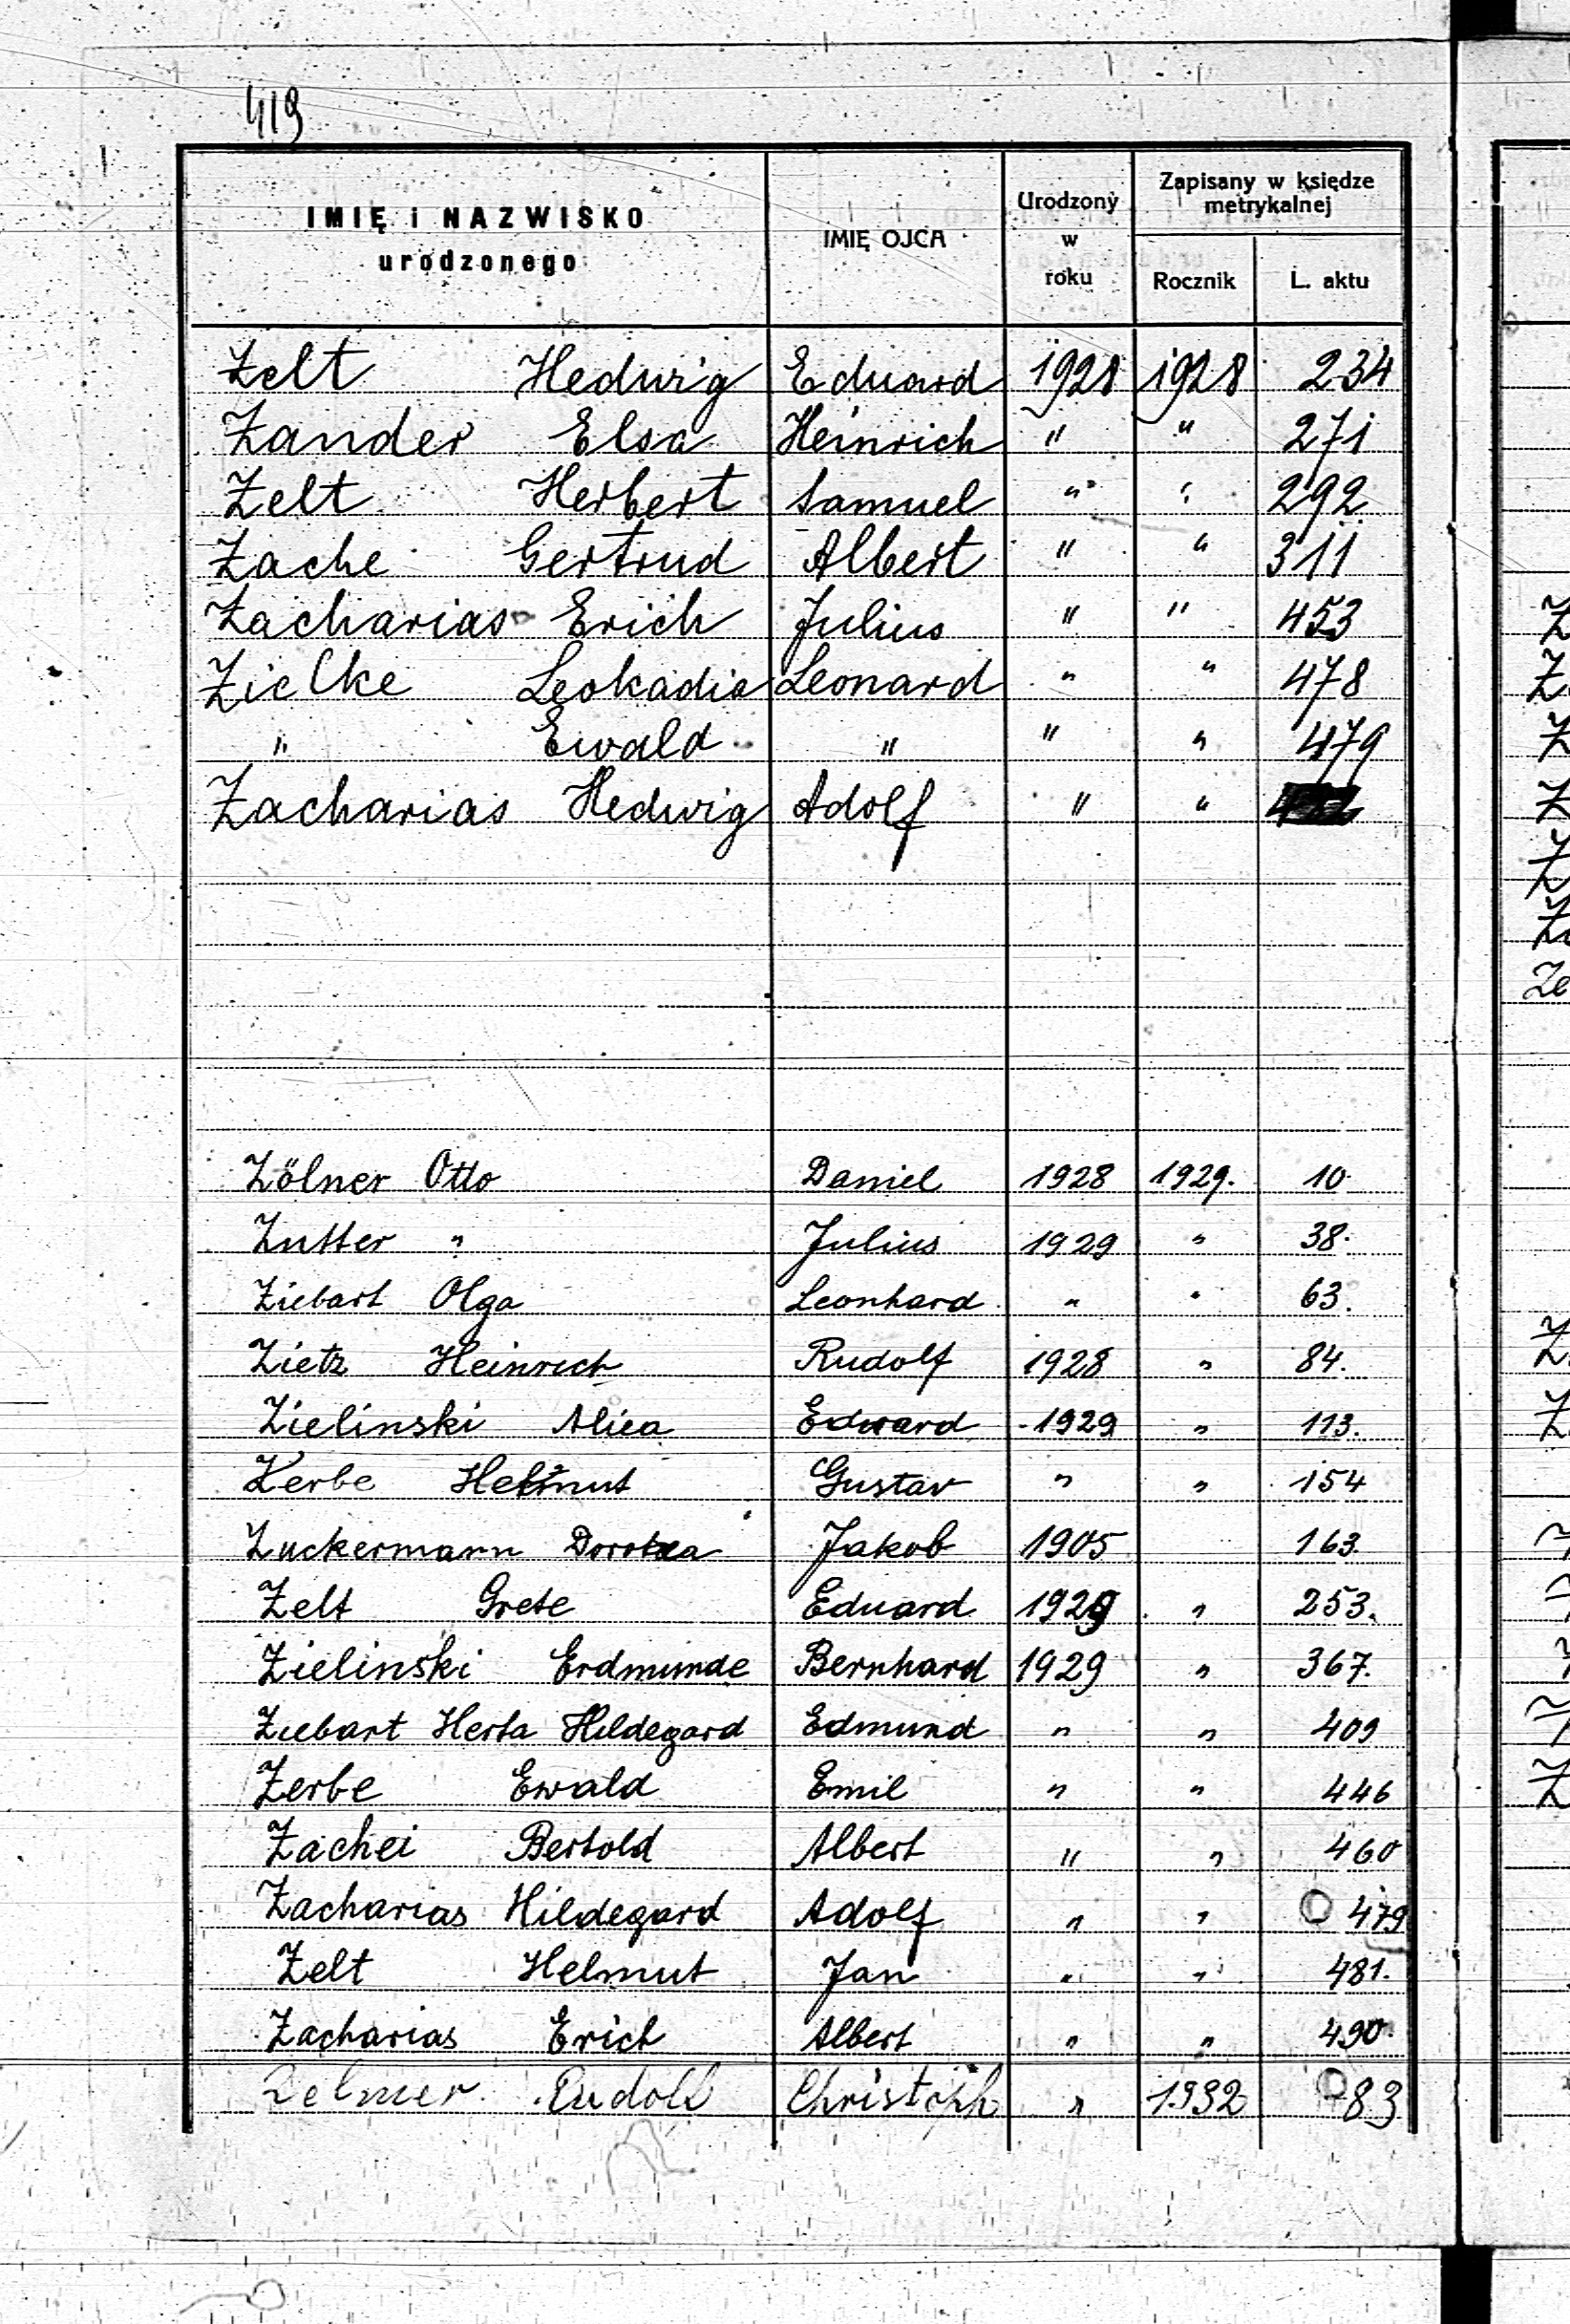 419
IMIĘ i NAZWISKO urodzonego
IMIĘ OJCA
Urodzony w roku
Zapisany w księdze metrykalnej
Rocznik L. aktu
Zelt Hedwig Eduard 1928 1928 234
Zander Elsa Heinrich " " 271
Zelt Herbert Samuel " " 292
Zache Gertrud Albert " " 311
Zacharias Erich Julius " " 453
Zielke Leokadia Leonard " " 478
" Ewald " " " 479
Zacharias Hedwig Adolf " "
Zölner Otto Daniel 1928 1929. 10
Zutter " Julius 1929 " 38.
Ziebart Olga Leonhard " " 63.
Zietz Heinrich Rudolf 1928 " 84.
Zielinski Alica Edward 1929 " 113.
Zerbe Helmut Gustav " " 154
Zuckermann Dorotea Jakob 1905 163.
Zelt Grete Eduard 1929 " 253.
Zielinski Erdmunde Bernhard 1929 " 367.
Ziebart Herta Hildegard Edmund " " 409
Zerbe Ewald Emil " " 446
Zachei Bertold Albert " " 460
Zacharias Hildegard Adolf " " 479
Zelt Helmut Jan " " 481.
Zacharias Erich Albert " " 490.
Zelmer Rudolf Christoph " 1932 83